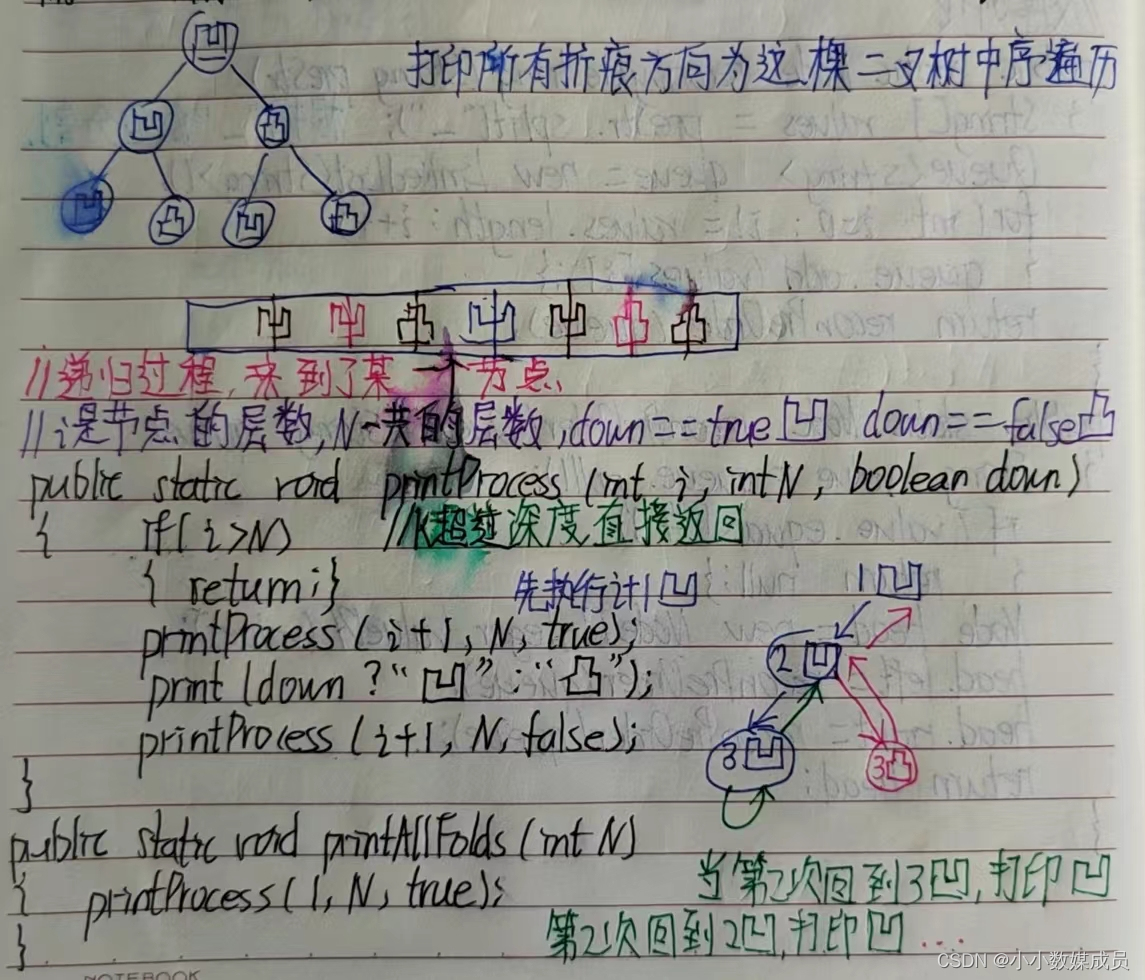 凹
打印所有折痕方向为这棵二叉树中序遍历
凹 凸
凹 凸 凹 凸
凹 凹 凸 凹 凹 凸 凸
//递归过程,来到了某一个节点
//i是节点的层数,N一共的层数,down==true凹 down==false凸
public static void printProcess (int i, int N, boolean down)
{ if( i>N) //K超过深度,直接返回
{ return;}
先执行i+1凹 1凹
printProcess (i+1, N, true);
2凹
print (down ? "凹" : "凸");
printProcess (i+1, N, false);
3凹 3凸
}
public static void printAllFolds (int N)
{ printProcess(1, N, true);
当第2次回到3凹,打印凹
} 第2次回到2凹,打印凹 ...
NOTEBOOK
CSDN @小小数媒成员